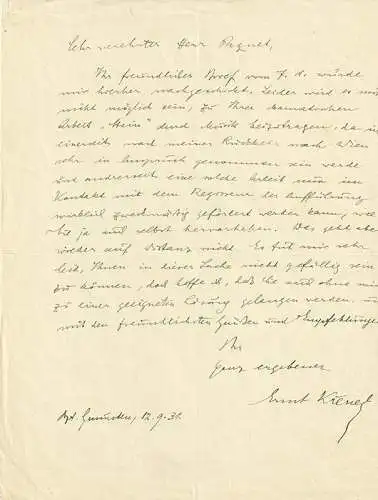 Sehr verehrter Herr Paquet,
Ihr freundlicher Brief vom 7. d. wurde
mir hierher nachgeschickt. Leider wird es mir
nicht möglich sein, zu Ihrer dramatischen
Arbeit „Stein" durch Musik beizutragen, da ich
einerseits nach meiner Rückkehr nach Wien
sehr in Anspruch genommen sein werde
und andrerseits eine solche Arbeit nur im
Kontakt mit dem Regisseur der Aufführung
wirklich zweckmäßig gefördert werden kann, wie
Sie ja auch selbst hervorheben. Das geht aber
wieder auf Distanz nicht. Es tut mir sehr
leid, Ihnen in dieser Sache nicht gefällig sein
zu können, doch hoffe ich, daß Sie auch ohne mich
zu einer geeigneten Lösung gelangen werden, und
mit den freundlichsten Grüßen und Empfehlungen
Ihr
ganz ergebener
Ernst Krenek
Gmunden, 12.9.31.